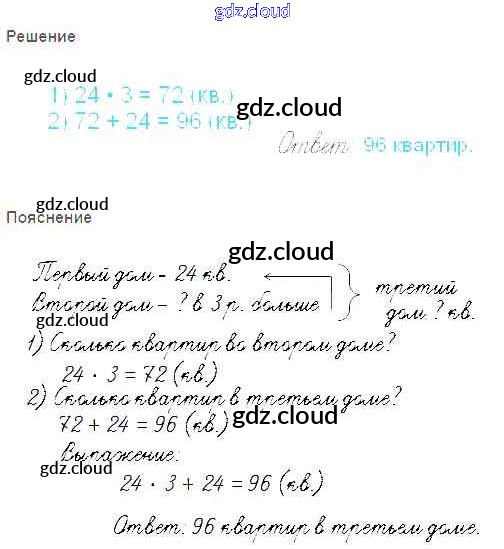 gdz.cloud
Решение
gdz.cloud
1) 24 • 3 = 72 (кв.)
gdz.cloud
2) 72 + 24 = 96 (кв.)
Ответ: 96 квартир.
gdz.cloud
Пояснение
gdz.cloud
Первый дом - 24 кв.
Второй дом - ? в 3 р. больше
третий
дом ? кв.
gdz.cloud
1) Сколько квартир во втором доме?
gdz.cloud
24 · 3 = 72 (кв.)
2) Сколько квартир в третьем доме?
gdz.cloud
gdz.cloud
72 + 24 = 96 (кв.)
Выпажение:
gdz.cloud
gdz.cloud
24 · 3 + 24 = 96 (кв.)
Ответ: 96 квартир в третьем доме.